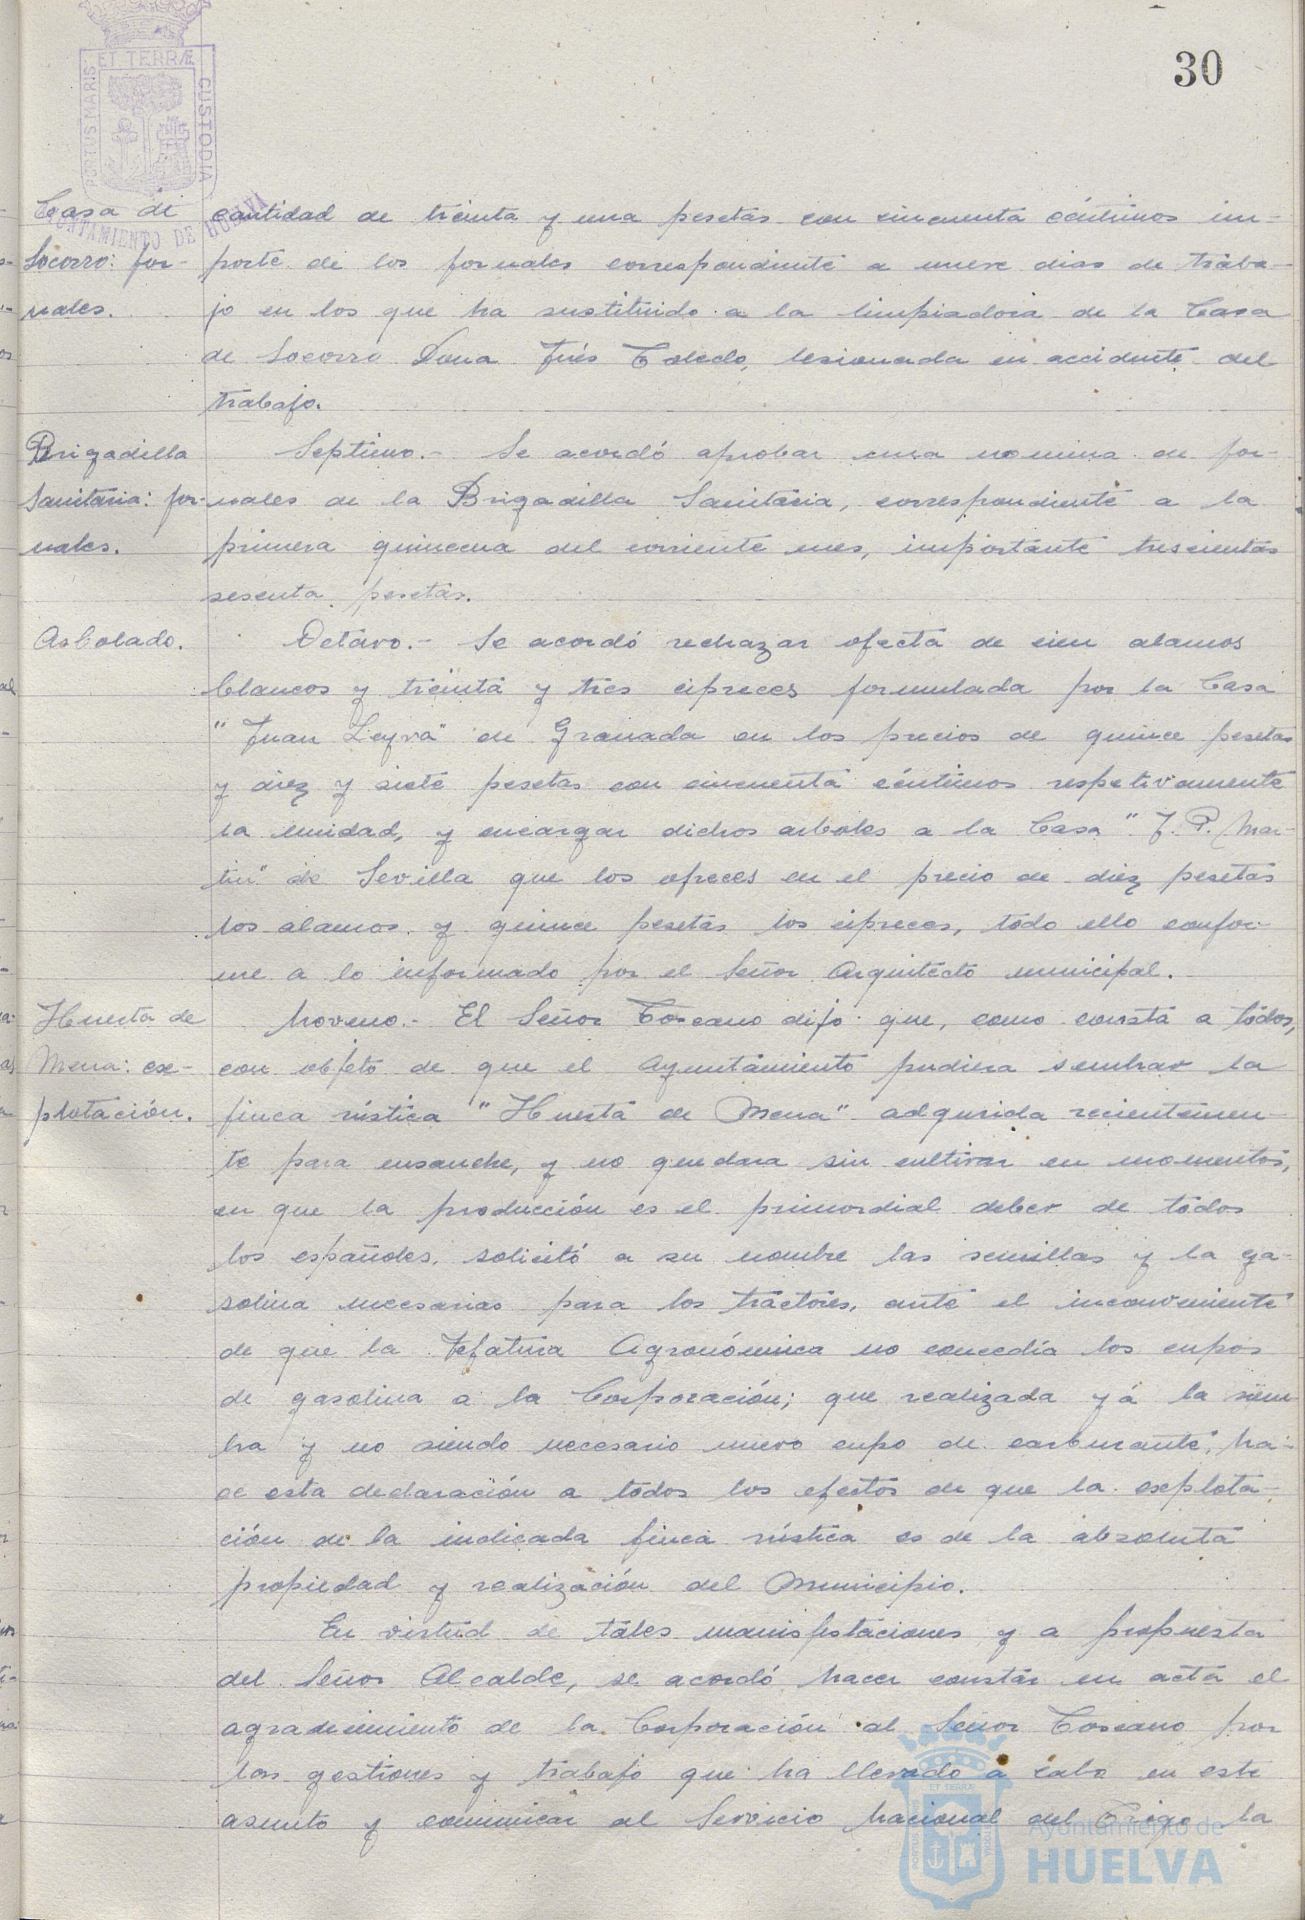 30
ET TERRÆ
PORTUS MARIS
CUSTODIA
AYUNTAMIENTO DE HUELVA
Casa de
Socorro: jor-
nales.
cantidad de treinta y una pesetas con cincuenta céntimos im-
porte de los jornales correspondiente a nueve dias de traba-
jo en los que ha sustituido a la limpiadora de la Casa
de Socorro Dona Inés Toledo, lesionada en accidente del
trabajo.
Brigadilla
Sanitaria: jor-
nales.
Septimo.- Se acordó aprobar una nomina de jor-
nales de la Brigadilla Sanitaria, correspondiente a la
primera quincena del corriente mes, importante trescientas
sesenta pesetas.
Arbolado.
Octavo.- Se acordó rechazar oferta de cien alamos
blancos y treinta y tres cipreces formulada por la Casa
"Juan Leyva" de Granada en los precios de quince pesetas
y diez y siete pesetas con cincuenta céntimos respetivamente
la unidad, y encargar dichos arboles a la Casa "J. P. Mar-
tin" de Sevilla que los ofreces en el precio de diez pesetas
los alamos y quince pesetas los cipreces, todo ello confor-
me a lo informado por el Señor Arquitecto municipal.
Huerta de
Mena: ex-
plotación.
Noveno.- El Señor Toscano dijo que, como consta a todos,
con objeto de que el Ayuntamiento pudiera sembrar la
finca rústica "Huerta de Mena" adqurida recientemen-
te para ensanche, y no quedara sin cultivar en momentos,
en que la producción es el primordial deber de todos
los españoles, solicitó a su nombre las semillas y la ga-
solina necesarias para los tractores, ante el inconveniente
de que la Jefatura Agronómica no concedía los cupos
de gasolina a la Corporación; que realizada yá la siem
bra y no siendo necesario nuevo cupo de carburante, ha-
ce esta declaración a todos los efectos de que la explota-
ción de la indicada finca rústica es de la absoluta
propiedad y realización del Municipio.
En virtud de tales manisfestaciones y a propuesta
del Señor Alcalde, se acordó hacer constar en acta el
agradecimiento de la Corporación al Señor Toscano por
las gestiones y trabajo que ha llevado a cabo en este
asunto y comunicar al Servicio Nacional del Trigo la
Ayuntamiento de
HUELVA